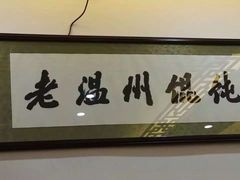 老温州馄饨